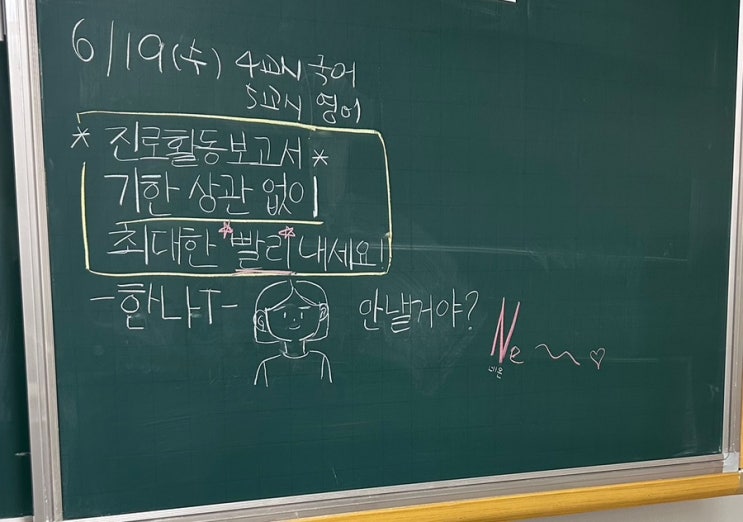 6/19(수) 4교시 국어
5교시 영어
* 진로활동보고서 *
기한 상관 없이
최대한 *빨리* 내세요!
-한나T-
안낼거야?
Ne~♡